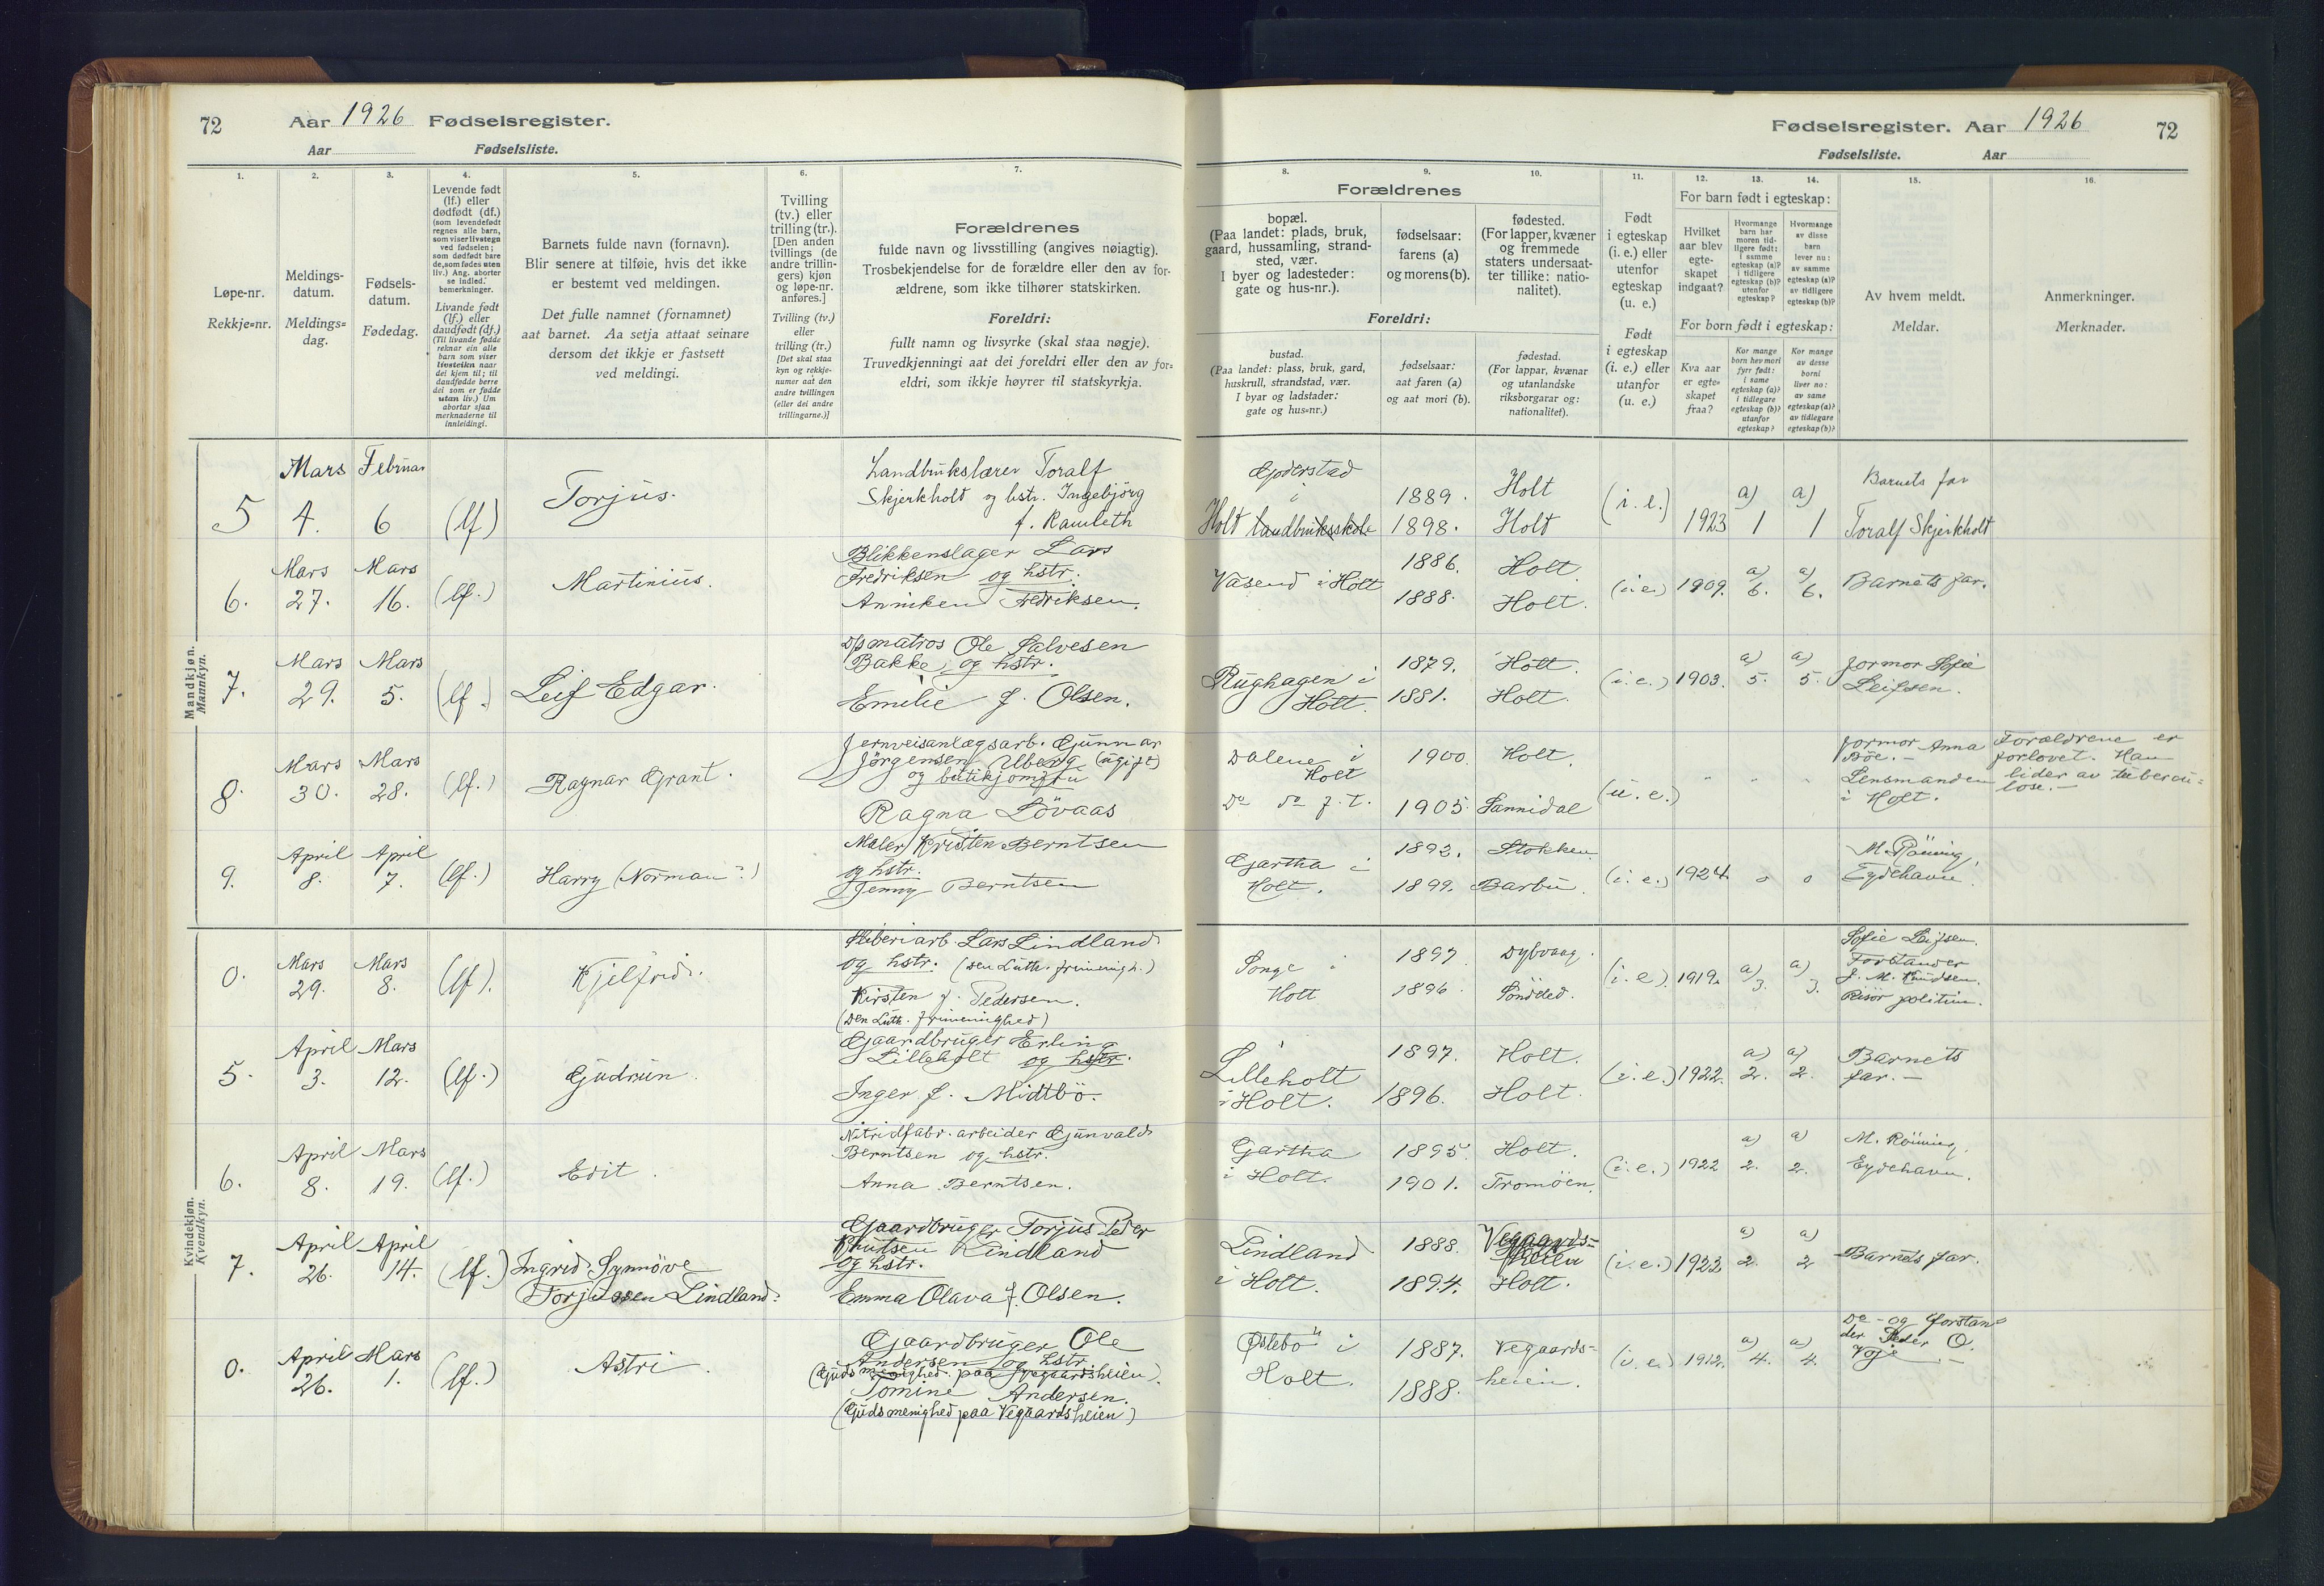 72
Aar 1926 Fødselsregister.
Aar
Fødselsliste.
1.
2.
3.
4.
5.
6.
7.
Løpe-nr.
Rekkje=nr.
Meldings-
datum.
Meldings=
dag.
Fødsels-
datum.
Fødedag.
Levende født
(lf.) eller
dødfødt (df.)
(som levendefødt
regnes alle barn,
som viser livstegn
ved fødselen;
som dødfødt bare
de, som fødes uten
liv.) Ang. aborter
se indled.
bemerkninger.
Livande født
(lf.) eller
daudfødt (df.)
(Til livande fødde
reknar ein alle
barn som viser
livsteikn naar
dei kjem til; til
daudfødde berre
dei som er fødde
utan liv.) Um
abortar sjaa
merknaderne til
innleidingi.
Barnets fulde navn (fornavn).
Blir senere at tilføie, hvis det ikke
er bestemt ved meldingen.
Det fulle namnet (fornamnet)
aat barnet. Aa setja attaat seinare
dersom det ikkje er fastsett
ved meldingi.
Tvilling
(tv.) eller
trilling (tr.).
[Den anden
tvillings (de
andre trillin-
gers) kjøn
og løpe-nr.
anføres.]
Tvilling (tv.)
eller
trilling (tr.)
[Det skal staa
kyn og rekkje-
numer aat den
andre tvillingen
(eller dei andre
trillingarne.)]
Forældrenes
fulde navn og livsstilling (angives nøiagtig).
Trosbekjendelse for de forældre eller den av for-
ældrene, som ikke tilhører statskirken.
Foreldri:
fullt namn og livsyrke (skal staa nøgje).
Truvedkjenningi aat dei foreldri eller den av for=
eldri, som ikkje høyrer til statskyrkja.
Mandkjøn.
Mannkyn.
Mars Februar
5 4. 6 (lf)
Torjus.
Landbrukslærer Toralf
Skjerkholt og hstr. Ingebjörg
f. Ramleth
Mars Mars
6. 27. 16. (lf.)
Martinius.
Blikkenslager Lars
Fredriksen og hstr.
Anniken Fredriksen.
Mars Mars
7. 29. 5. (lf.)
Leif Edgar.
D/s matros Ole Salvesen
Bakke og hstr.
Emilie f. Olsen.
Mars Mars
8. 30. 28. (lf.)
Ragnar Grant.
Jernveisanlægsarb. Gunnar
Jörgensen Uberg (ugift)
og butikjomfru
Ragna Lövaas
April April
9. 8. 7. (lf.)
Harry (Norman?)
Maler Kristen Berntsen
og hstr.
Jenny Berntsen
Kvindekjøn.
Kvendkyn.
Mars Mars
0. 29. 8. (lf).
Kjellfrid.
Sliberiarb. Lars Lindland
og hstr. (den Luth. frimenigh.)
Kirsten f. Pedersen.
(den Luth. frimenighed)
April Mars
5. 3. 12. (lf.)
Gudrun.
Gaardbruger Erling
Lilleholt og hstr.
Inger f. Midtbö.
April Mars
6. 8. 19. (lf.)
Edit.
Nitridfabr. arbeider Gunvald
Berntsen og hstr.
Anna Berntsen.
April April
7. 26. 14. (lf.)
Ingrid Synnöve
Torjussen Lindland.
Gaardbruger Torjus Peder
Knutsen Lindland
og hstr.
Emma Olava f. Olsen.
April Mars
0. 26. 1. (lf.)
Astri.
Gaardbruger Ole
Andersen og hstr.
(Guds menighed paa Vegaardsheien).
Tomine Andersen.
(Guds menighed paa Vegaardsheien)
Fødselsregister. Aar 1926
72
Fødselsliste.
Aar
8.
9.
10.
11.
12.
13.
14.
15.
16.
Forældrenes
bopæl.
(Paa landet: plads, bruk,
gaard, hussamling, strand-
sted, vær.
I byer og ladesteder:
gate og hus-nr.).
fødselsaar:
farens (a)
og morens (b).
fødested.
(For lapper, kvæner
og fremmede
staters undersaat-
ter tillike: natio-
nalitet).
Foreldri:
bustad.
(Paa landet: plass, bruk, gard,
huskrull, strandstad, vær.
I byar og ladstader:
gate og hus=nr.)
fødselsaar:
aat faren (a)
og aat mori (b).
fødestad.
(For lappar, kvænar
og utanlandske
riksborgarar og:
nationalitet).
Født
i egteskap
(i. e.) eller
utenfor
egteskap
(u. e.)
Født
i egteskap
(i. e.) eller
utanfor
(u. e.)
For barn født i egteskap:
Hvilket
aar blev
egte-
skapet
indgaat?
Hvormange
barn har
moren tid-
ligere født:
i samme
egteskap (a)?
i tidligere
egteskap (b)?
utenfor
egteskap?
Hvormange
av disse
barn
lever nu:
av samme
egteskap (a)?
av tidligere
egteskap (b)?
For born født i egteskap:
Kva aar
er egte=
skapet
fraa?
Kor mange
born hev mori
fyrr født:
i same
egteskap (a)?
i tidlegare
egteskap (b)?
utanfor
egteskap?
Kor mange
av desse
borni
liver no:
av same
egteskap (a)?
av tidlegare
egteskap (b)?
Av hvem meldt.
Meldar.
Anmerkninger.
Merknader.
Gjderstad
i
Holt landbruksskole
1889. Holt
1898. Holt
(i. e.)
1923 a) 1 a) 1
Barnets far
Toralf Skjerkholt
Vasend i Holt
1886. Holt.
1888. Holt.
(i.e.) 1909. a) 6. a) 6.
Barnets far.
Rughagen i
Holt.
1879. Holt.
1881. Holt.
(i.e.) 1903. a) 5. a) 5.
Jormor Sofie
Leifsen.
Dalene i
Holt
Do do f. t.
1900. Holt.
1905. Sannidal
(u.e.)
Jormor Anna
Böe.-
Lensmanden
i Holt.
Forældrene er
forlovet. Han
lider av tubercu-
lose.-
Gartha i
Holt.
1892. Stokken
1899. Barbu.
(i.e.) 1924. o o
M. Röning,
Eydehavn.
Songe i
Holt
1897 Dybvaag.
1896. Söndeled.
(i.e.) 1919. a) 3. a) 3.
Sofie Leifsen.
Forstander
J. M. Knudsen.
Risör politim.
Lilleholt
i Holt.
1897. Holt.
1896. Holt.
(i.e.) 1922. a) 2. a) 2.
Barnets
far.-
Gartha
i Holt.
1895. Holt.
1901. Tromöen.
(i.e.) 1922 a) 2. a) 2.
M. Röning,
Eydehavn.
Lindland
i Holt.
1888. Vegaards-
heien
1894. Holt.
(i.e.) 1923 a) 2. a) 2
Barnets far.
Østebö i
Holt.
1887. Vegaards-
1888. heien.
(i.e.) 1912. a) 4. a) 4.
De - og forstan-
der Peder O.
Voje.-